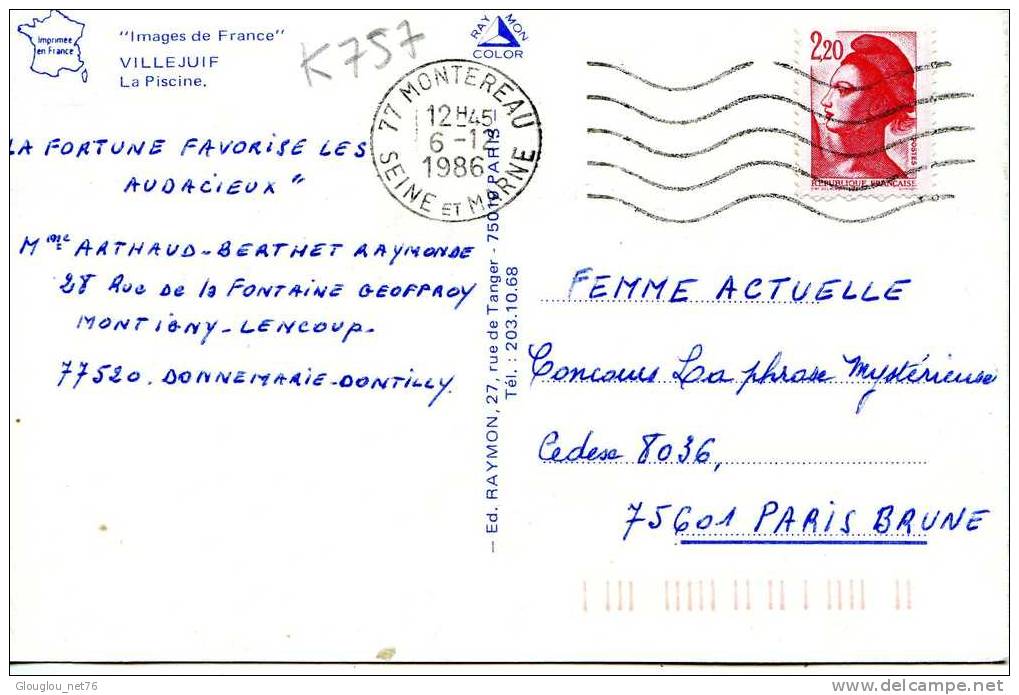 Imprimée
en France
"Images de France"
VILLEJUIF
La Piscine.
K757
RAYMON
COLOR
77 MONTEREAU
12H45
6-11
1986
SEINE ET MARNE
2,20
POSTES
RÉPUBLIQUE FRANÇAISE
LA FORTUNE FAVORISE LES
AUDACIEUX"
Mme ARTHAUD-BERTHET RAYMONDE
28 Rue de la FONTAINE GEOFFROY
MONTIGNY-LENCOUP-
77520. DONNEMARIE-DONTILLY.
— Ed. RAYMON, 27, rue de Tanger - 75019 PARIS
Tél. : 203.10.68
FEMME ACTUELLE
Concours La phrase Mystérieuse
Cedex 8036,
75601 PARIS BRUNE
Glouglou_net76
delcampe.net